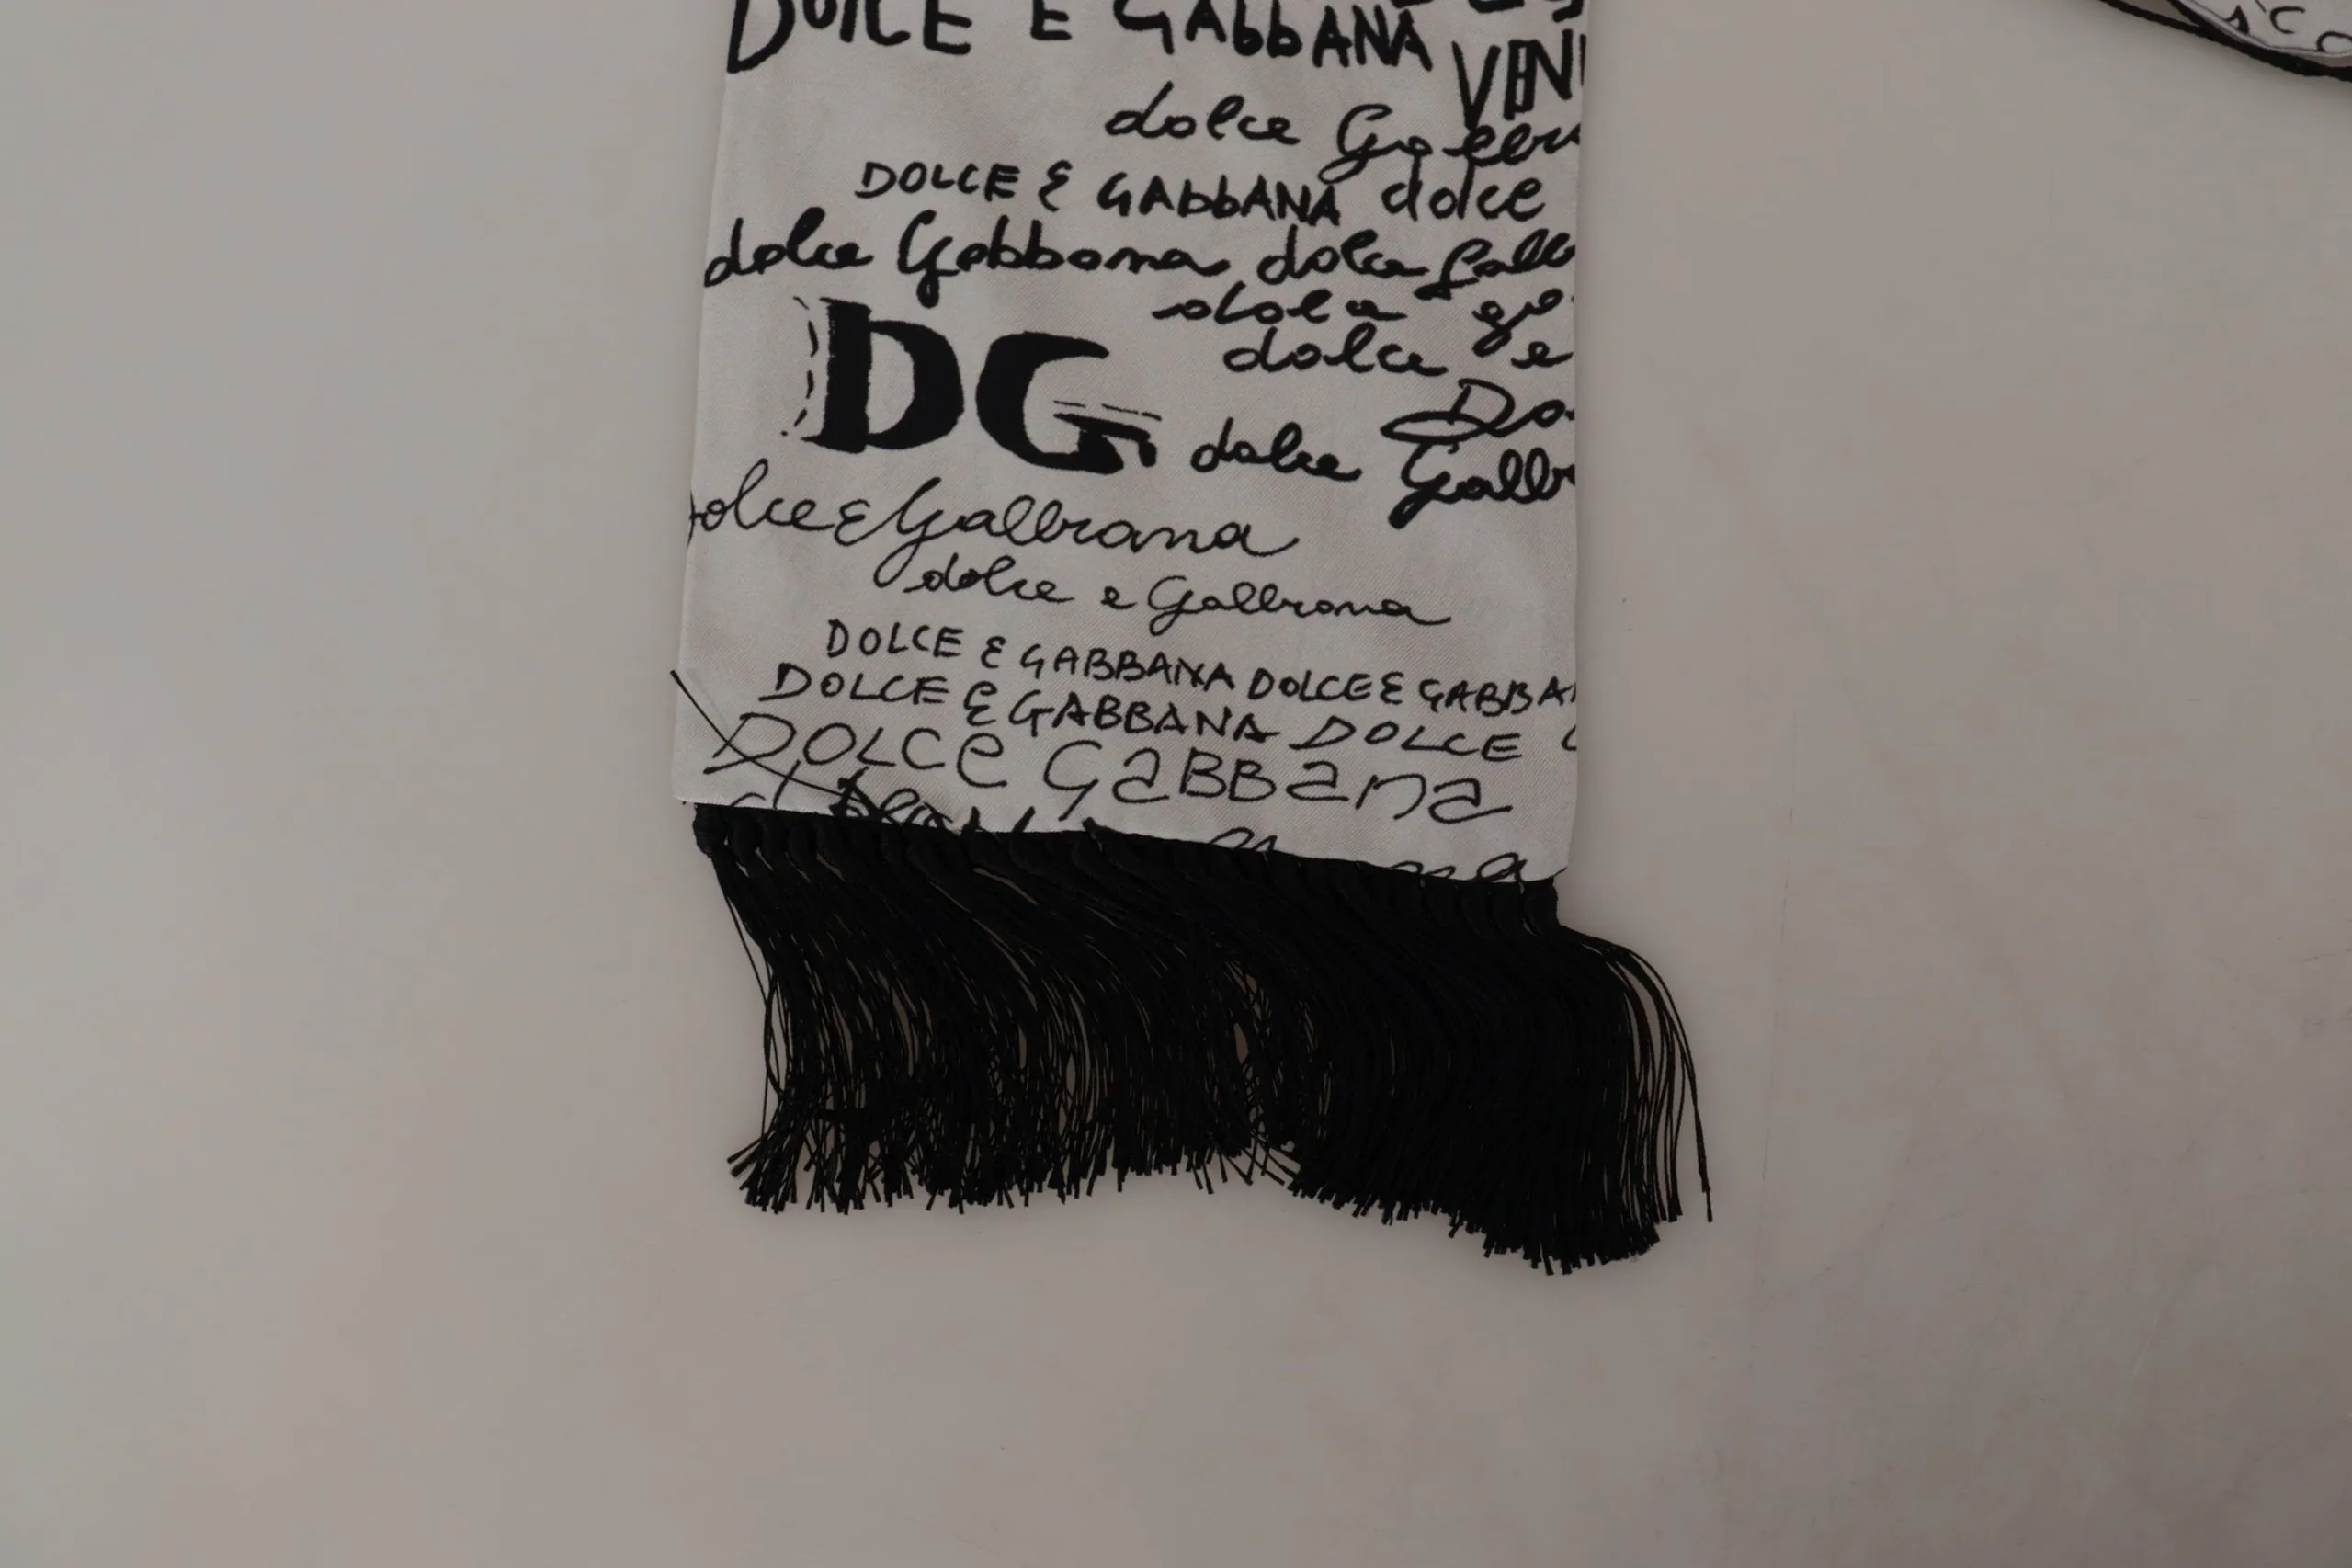 DOLCE E GABBANA
VIN
dolce Gabb
DOLCE & GABBANA dolce
dolce Gabbana dolce Gabb
dolce ga
dolce e
DG
Do
dolce Gabb
olce & Gabbana
dolce e Gabbana
DOLCE & GABBANA DOLCE & GABBA
DOLCE & GABBANA DOLCE
DOLCE GABBANA